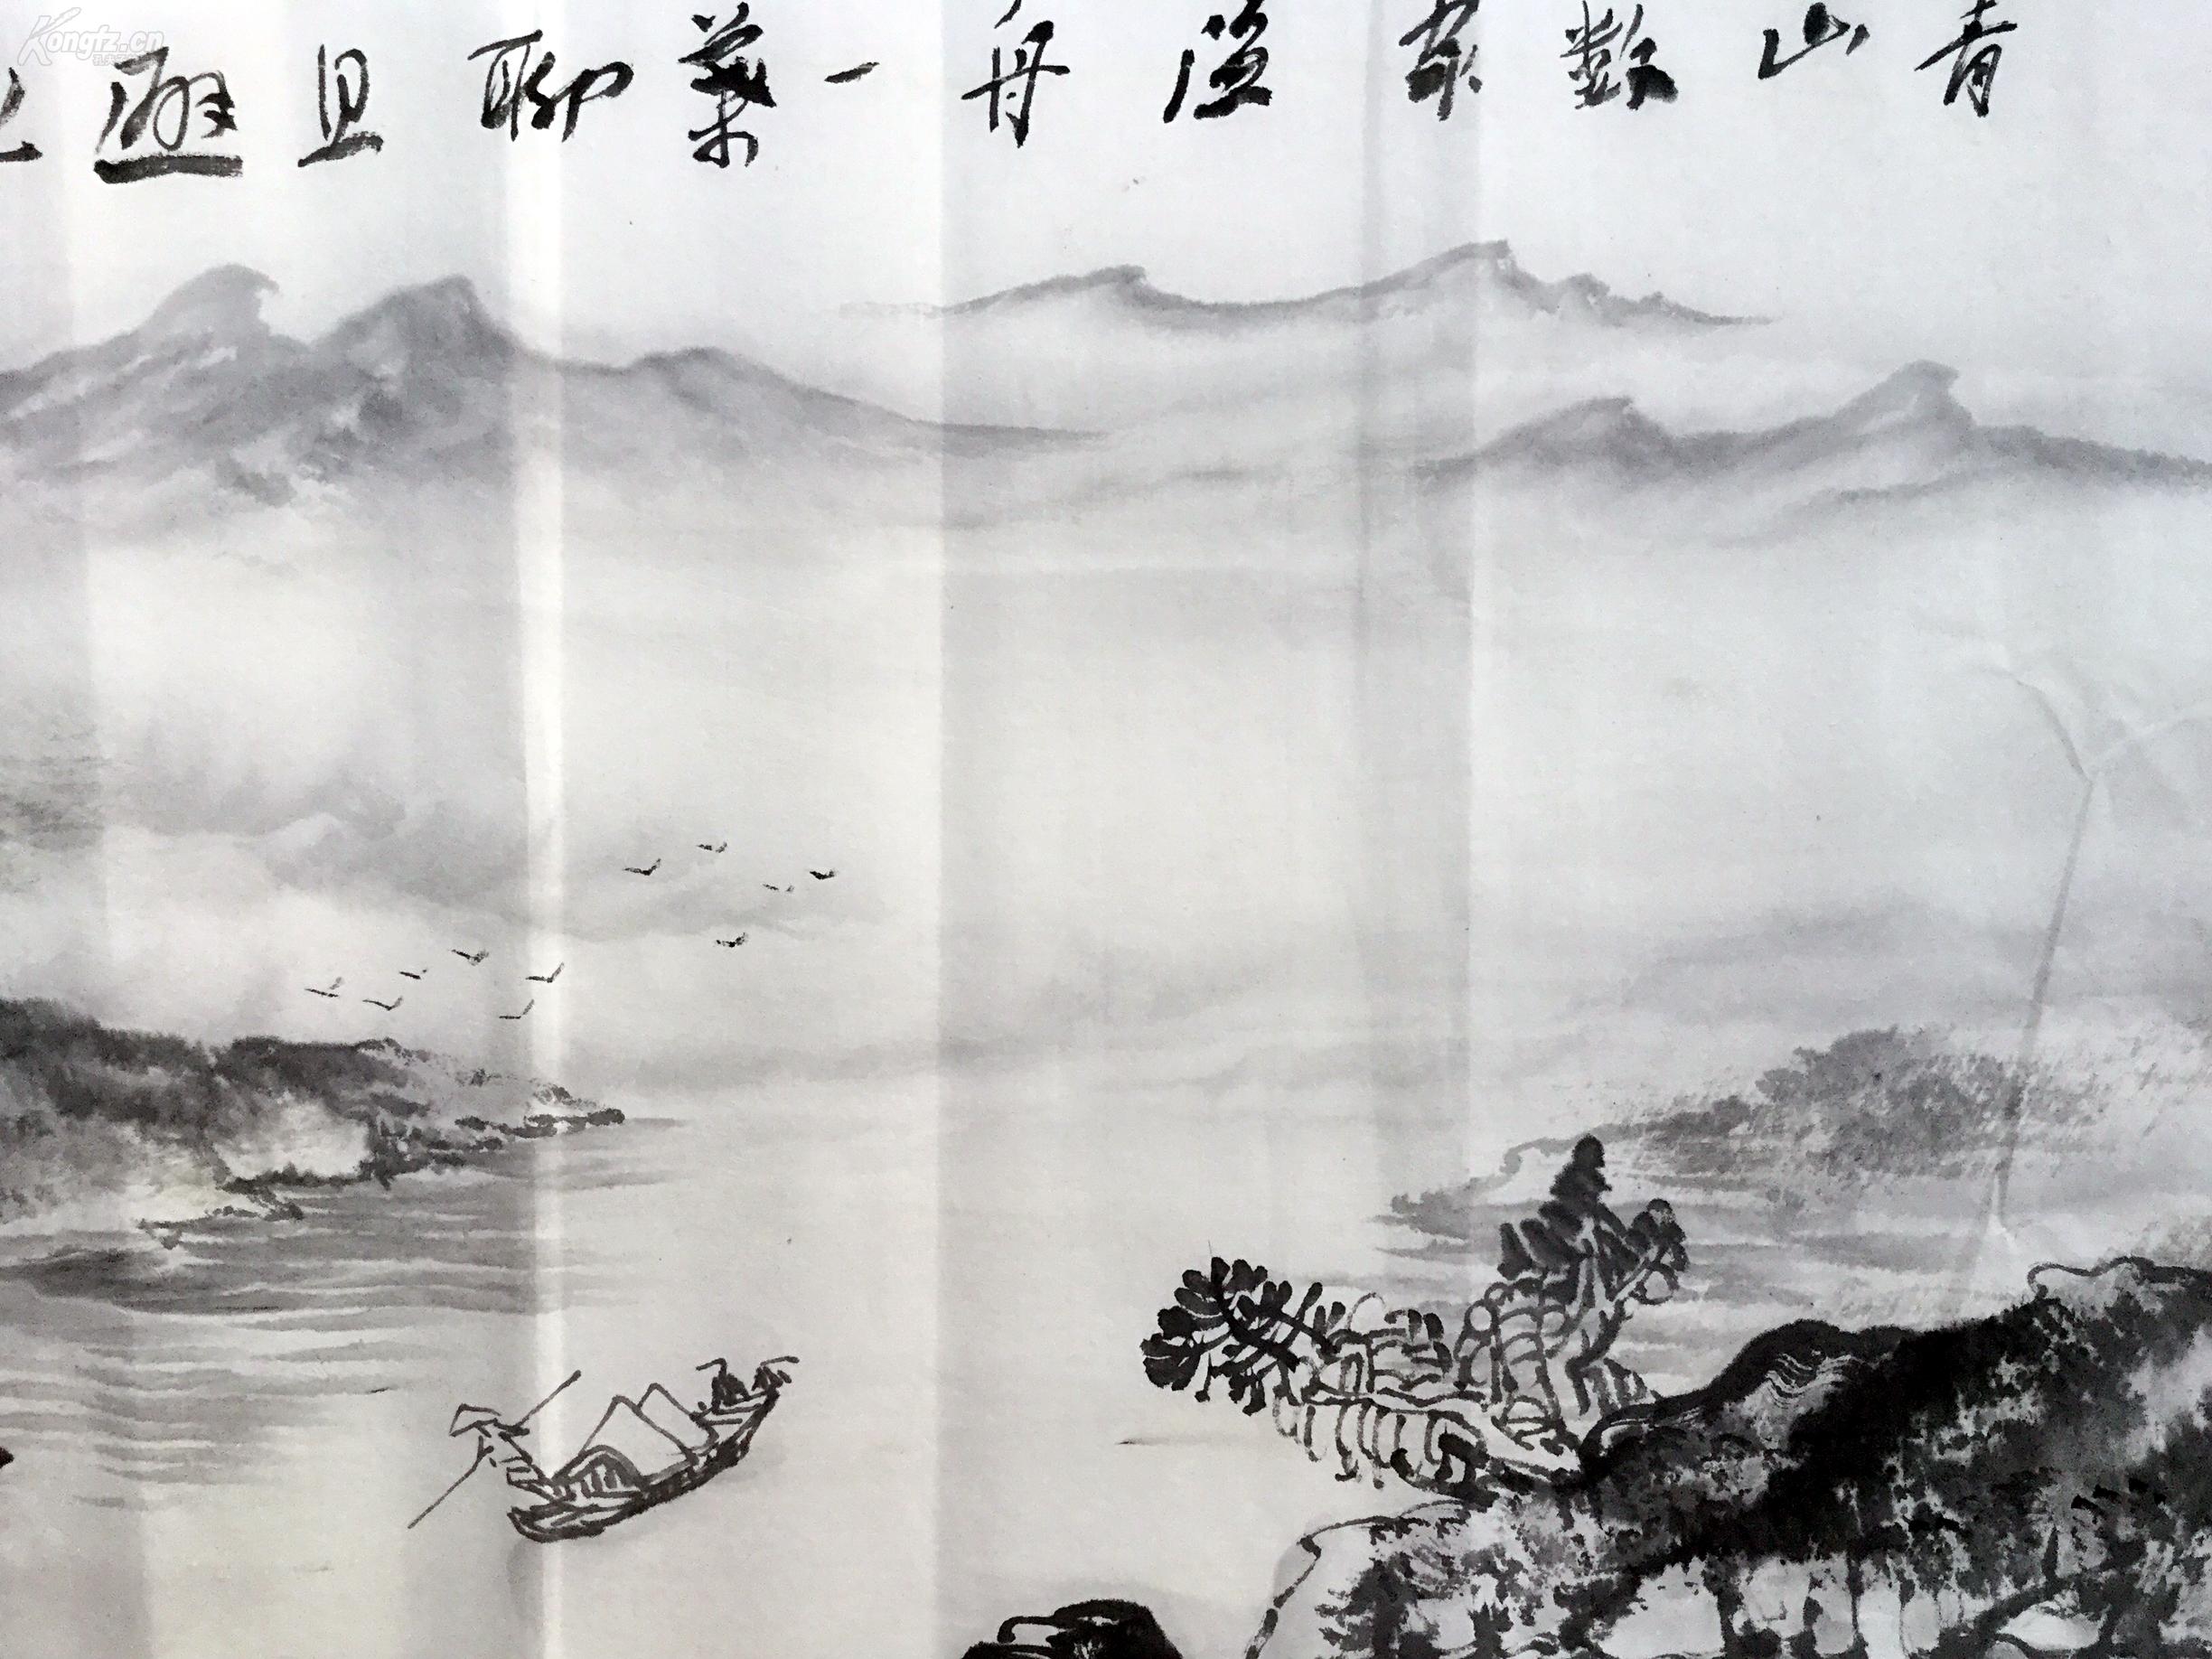 Kongfz.cn
青山數家渔舟一葉聊且避